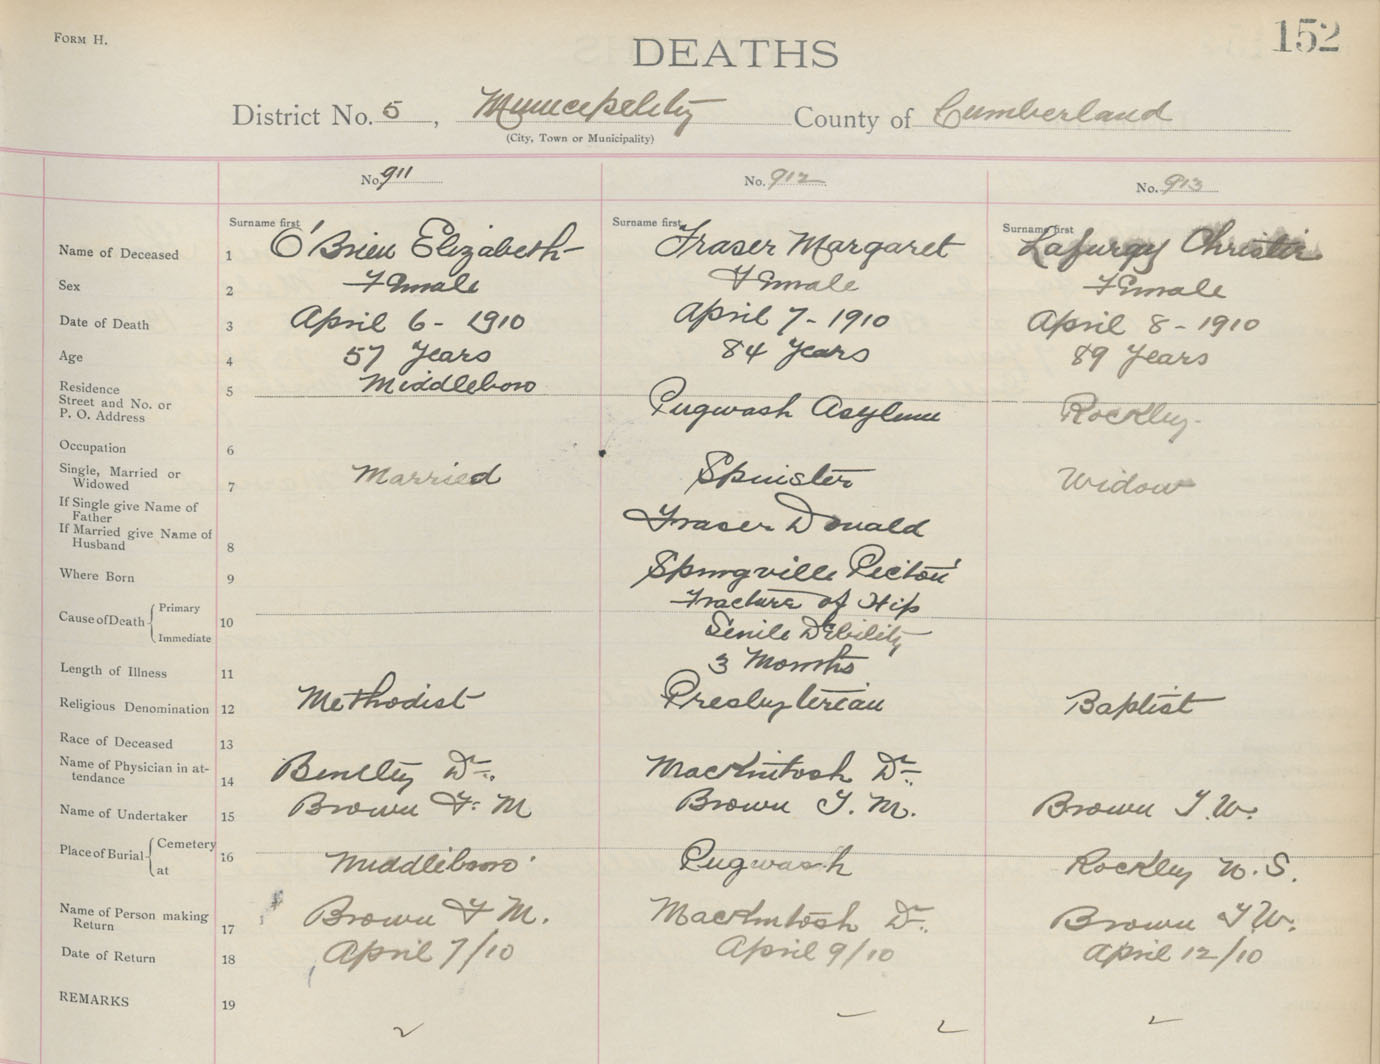 FORM H.
152
DEATHS
District No. 5, Municipality County of Cumberland
(City, Town or Municipality)
No. 911 No. 912 No. 913
Surname first Surname first Surname first
Name of Deceased 1 O'Brien Elizabeth Fraser Margaret Lafurgy Christie
Sex 2 Female Female Female
Date of Death 3 April 6 - 1910 April 7 - 1910 April 8 - 1910
Age 4 57 Years 84 Years 89 Years
Residence 5 Middleboro
Street and No. or Pugwash Asylum Rockley
P. O. Address
Occupation 6
Single, Married or
Widowed 7 Married Spinster Widow
If Single give Name of
Father Fraser Donald
If Married give Name of
Husband 8
Where Born 9 Springville Pictou
Cause of Death Primary 10 Fracture of Hip
Immediate Senile Debility
Length of Illness 11 3 Months
Religious Denomination 12 Methodist Presbyterian Baptist
Race of Deceased 13
Name of Physician in at-
tendance 14 Bentley Dr. MacKintosh Dr.
Name of Undertaker 15 Brown F. M Brown F. M. Brown F. W.
Place of Burial Cemetery 16
at Middleboro Pugwash Rockley N. S.
Name of Person making
Return 17 Brown F M. MacKintosh Dr. Brown F W.
Date of Return 18 April 7/10 April 9/10 April 12/10
REMARKS 19